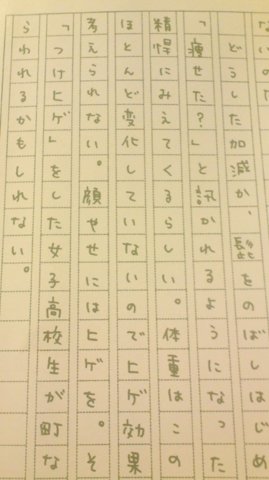 ないのた
どうした加減か、髭をのばしはじめ
「痩せた?」と訊かれるようになった
精悍にみえてくるらしい。体重はこの
ほとんど変化していないのでヒゲ効果
考えられない。顔やせにはヒゲを。そ
「つけヒゲ」をした女子高校生が町な
らわれるかもしれない。